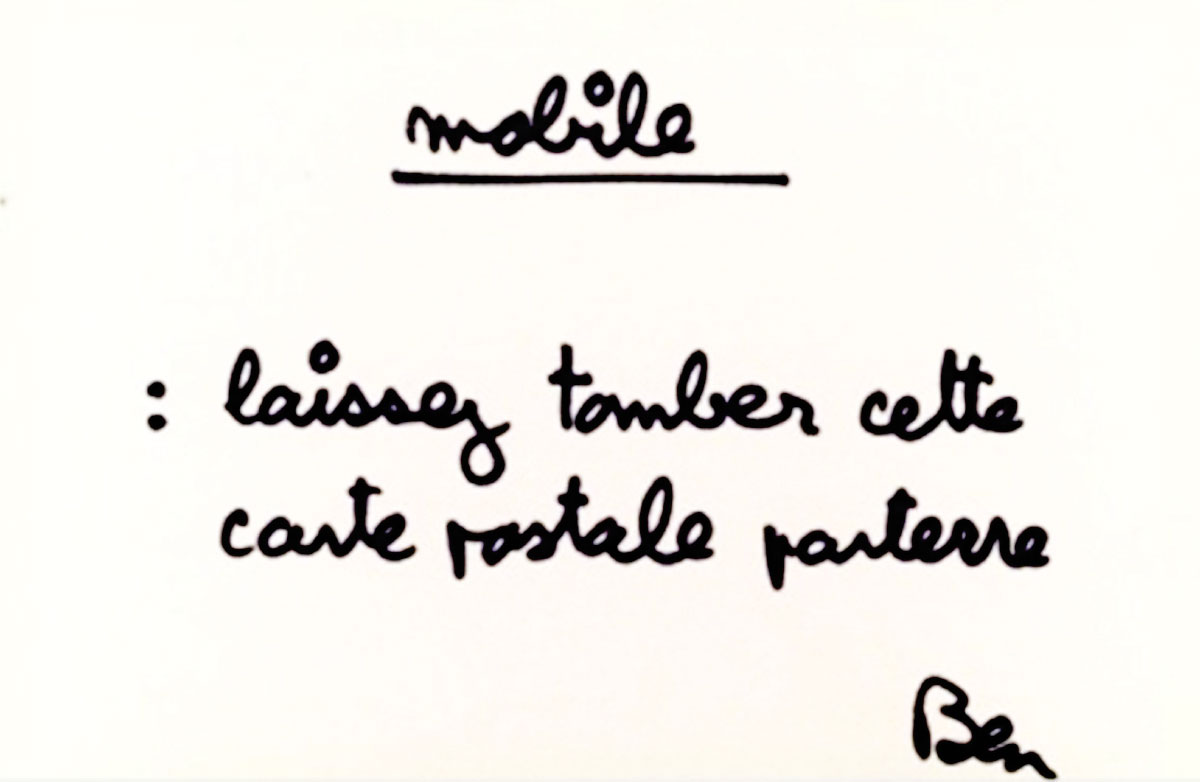 mobile
: laissez tomber cette
carte postale parterre
Ben